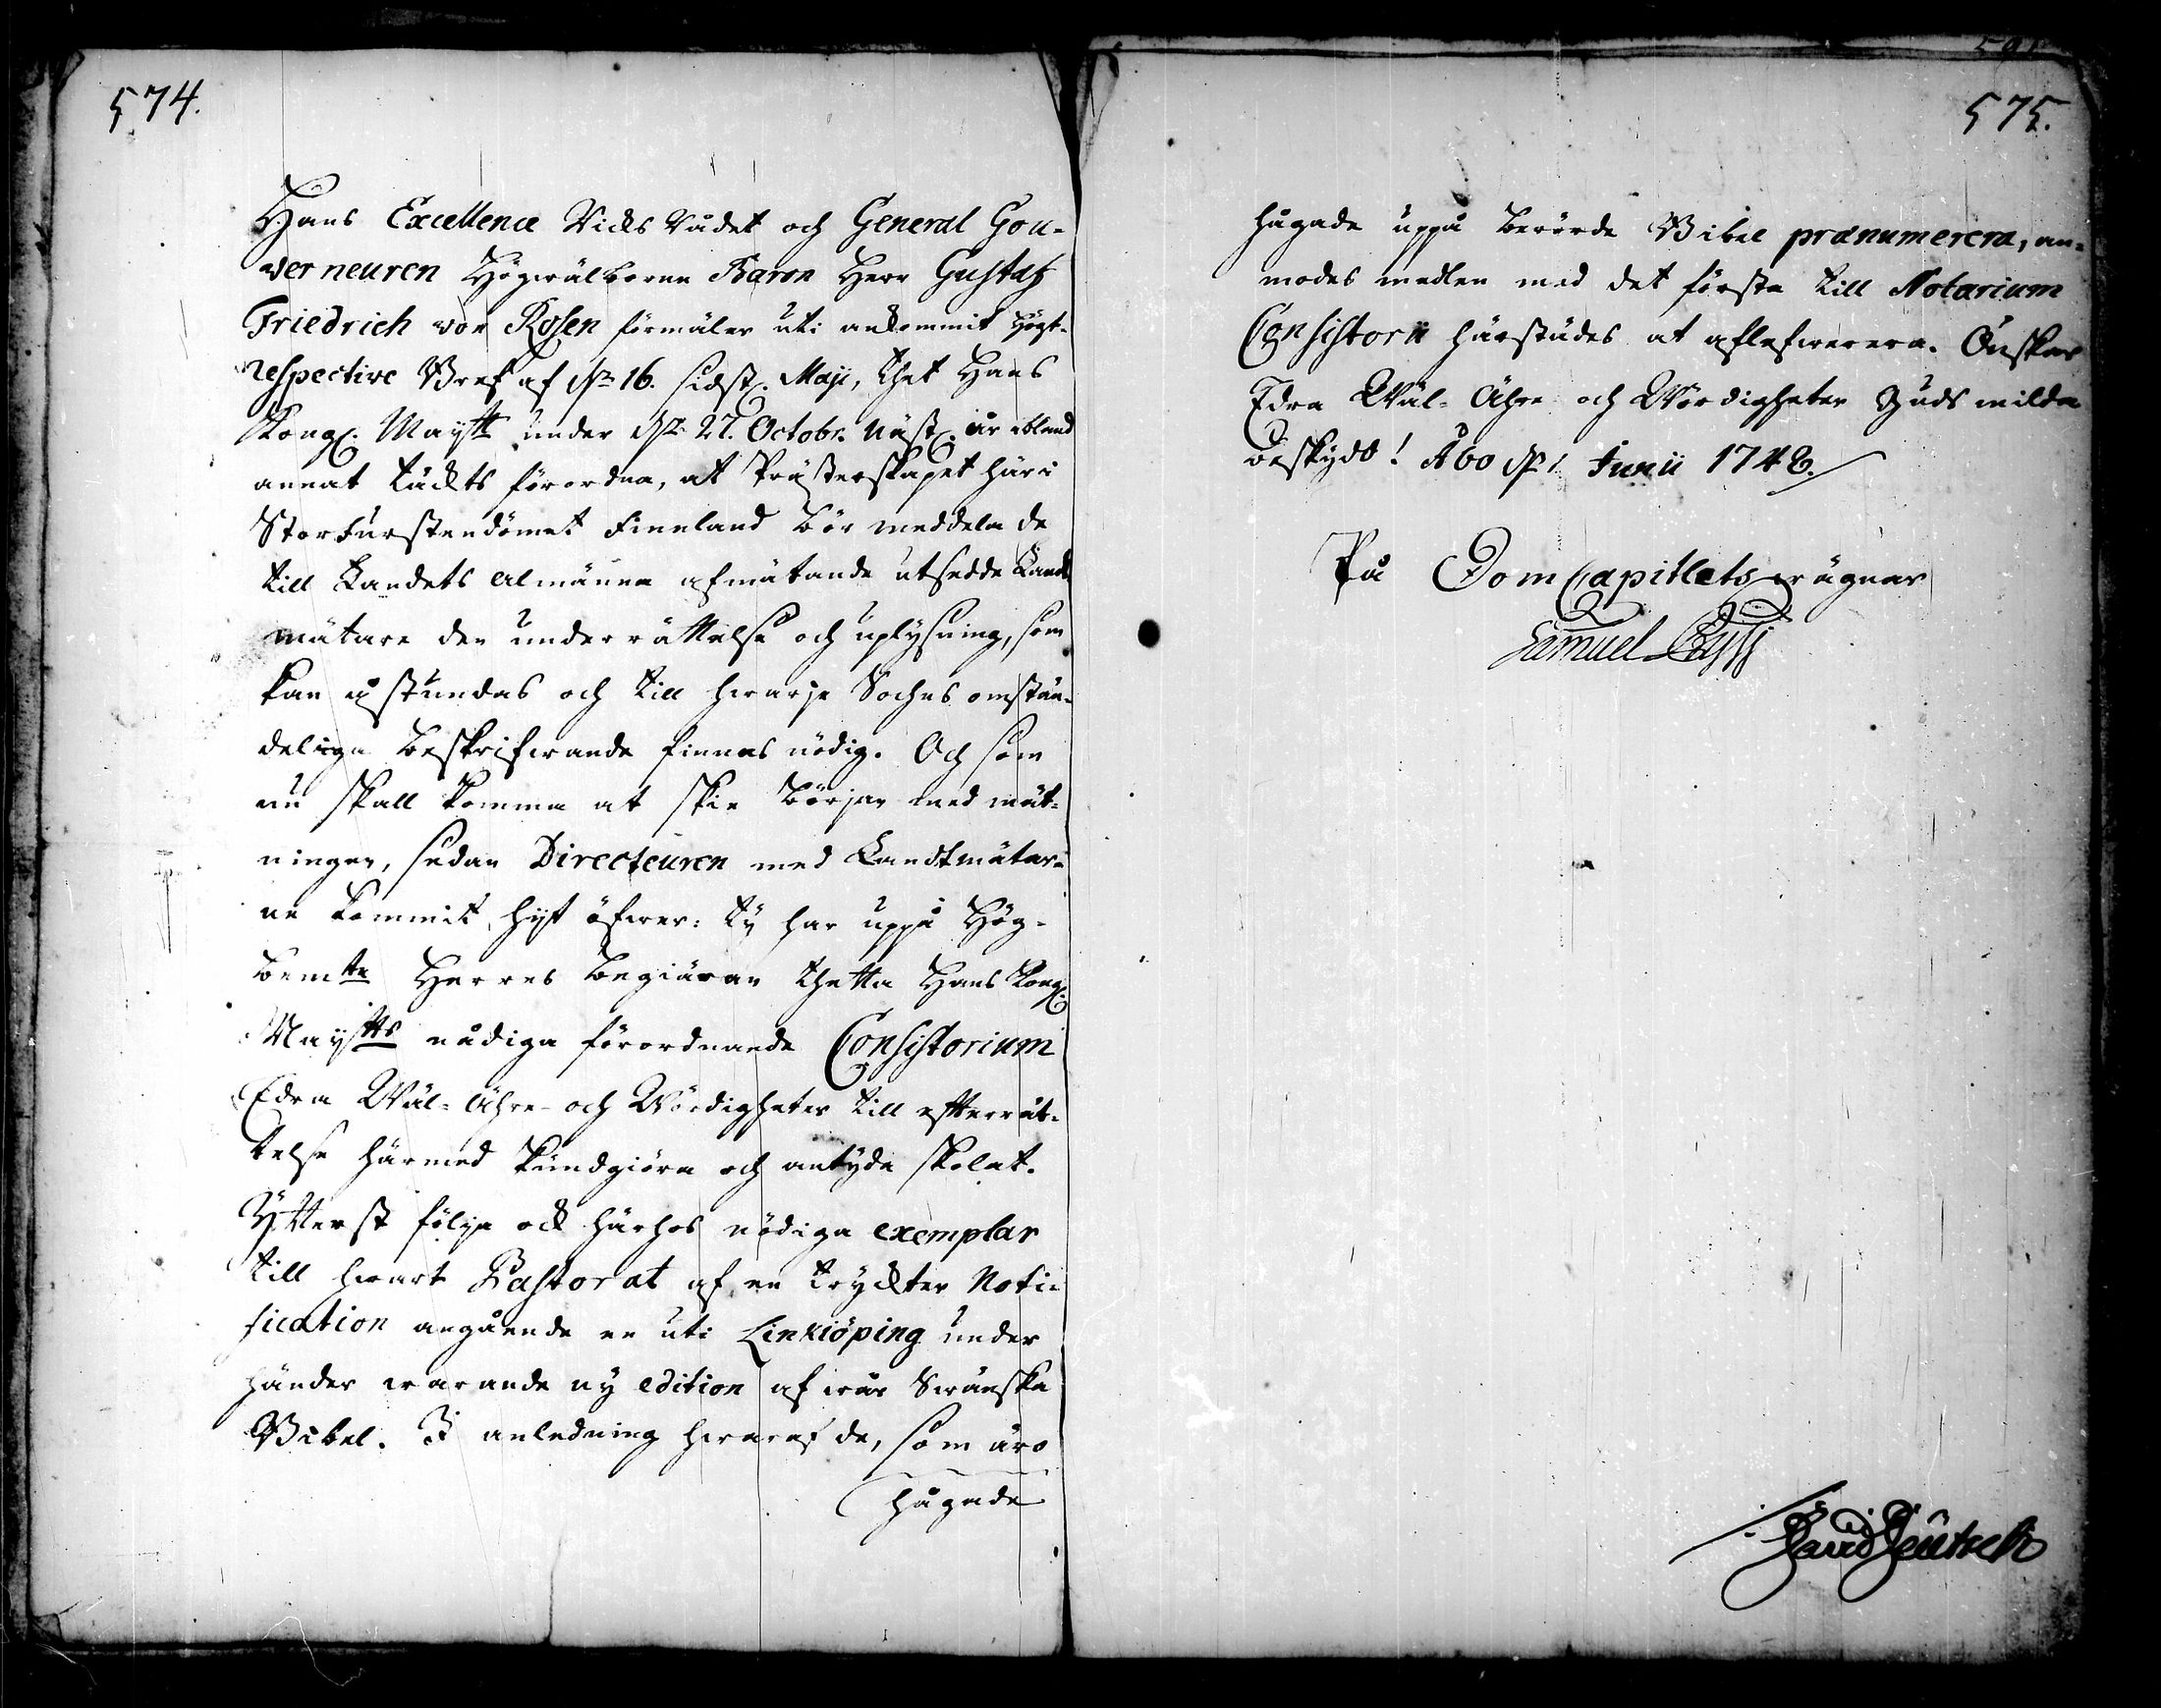 574.
Hans Excellence Riks Rådet och General Gou-
verneuren Högwälborne Baron Herr Gustaf
Friedrich von Rosen förmäler uti ankommit högt-
respective Bref af d. 16. sidstl. Maji, thet Hans
Kongl. Maytt under d. 27. Octobr. näst. år ibland
annat täckts förordna, at Prästerskapet här i
StorFurstendömet Finnland bör meddela de
till Landets almänna afmätande utsedde Landt
mätare den underrättelse och uplysning, som
kan åstundas och till hwarje Sochns omstän-
deliga beskrifwande finnas nödig. Och som
nu skall komma at skie början med mät-
ningen, sedan Directeuren med Landtmätar-
ne kommit hijt öfwer: ty har uppå Hög-
bemte Herres begiäran thetta Hans Kongl.
Maytts nådiga förordnande Consistorium
Edra Wäl- Ähre- och Wördigheter till efterrät-
telse härmed kundgiöra och antyda skolat.
Ytterst följa ock härhos nödiga exemplar
till hwart Pastorat af en tryckter Noti-
fication angående en uti Linkiöping under
händer warande ny edition af wår Swänska
Bibel. I anledning hwaraf de, som äro
hugade
575.
hugade uppå berörde Bibel prænumerera, an-
modes medlen med det första till Notarium
Consistorii härstädes at aflefwerera. Önskar
Edra Wäl- Ähre och Wördigheter Guds milda
beskydd! Åbo d. 1 Junii 1748.
På DomCapitlets wägnar
Samuel
David Deutsch